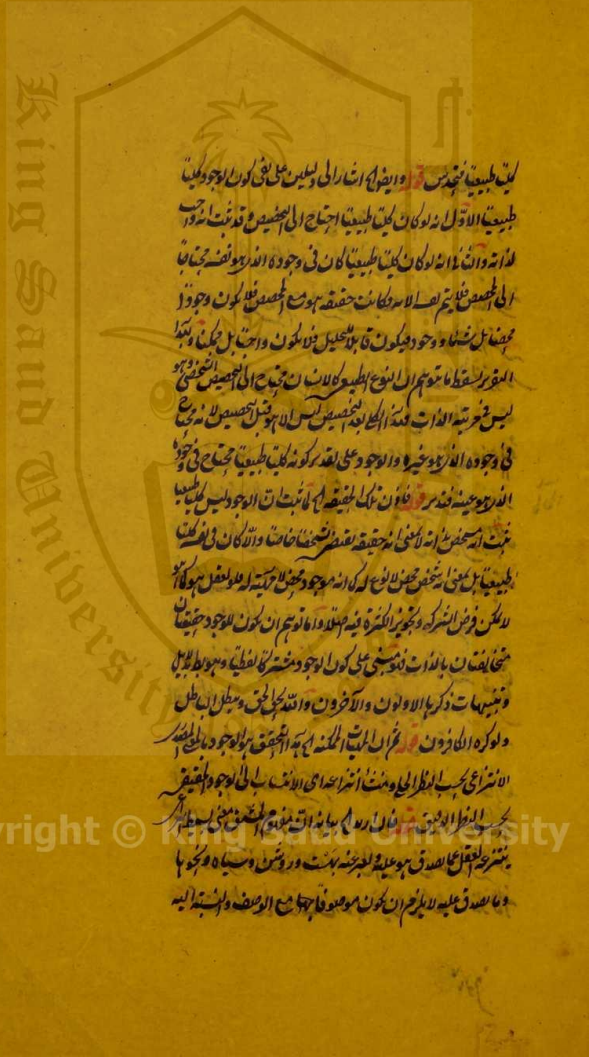 كليا طبيعيا فتحدس قوله وايضا الخ اشار الى دليلين على نفى كون الوجود كليا
طبيعيا الاول انه لو كان كليا طبيعيا احتاج الى التخصيص وقد ثبت انه واجب
لذاته والثانى انه لو كان كليا طبيعيا كان فى وجوده الذى هو نفسه محتاجا
الى المخصص فلا يتم نفسه الا به وكانت حقيقته هو مع المخصص فلا يكون وجودا
محضا بل شيئا ووجود فيكون قابلا للتحليل فلا يكون واجبا بل ممكنا وبهذا
التقرير سقط ما توهم ان النوع الطبيعى كالانسان محتاج الى التخصيص الشخصى وهو
ليس فى مرتبة الذات فهذا الكلى بعد التخصيص ليس الا هو قبل التخصيص لانه محتاج
فى وجوده الذى هو غيره والوجود على تقدير كونه كليا طبيعيا محتاج فى وجوده
الذى هو عينه فتدبر قوله فاذن تلك الحقيقة الخ لما ثبت ان الوجود ليس كليا طبيعيا
ثبت انه متشخص لا بمعنى انه حقيقة يقتضى تشخصا خاصا والا كان فى نفسه كليا
طبيعيا بل بمعنى انه شخص محض لا نوع له كما انه موجود محض لا مهية له فلو تعقل هو كما هو
لا يمكن فرض الشركة وتجويز الكثرة فيه اصلا واما توهم ان يكون للوجود حقيقتان
متخالفتان بالذات فهو مبنى على كون الوجود مشتركا لفظيا وهو بط بدلايل
وتنبيهات ذكرها الاولون والآخرون والله يحق الحق ويبطل الباطل
ولو كره الكافرون قوله ثم ان المهيات الممكنة الخ به التحقق هو الوجود بالمعنى المصدرى
الانتزاعى بحسب النظر الجلى ومنشأ انتزاعه اى الانتساب الى الوجود الحقيقى
بحسب النظر الدقيق قوله فان اريد الخ بيانه ان مفهوم المشتق معنى بسيط
ينتزعه العقل عما يصدق هو عليه ويعبر عنه بهست وروشن وسياه ونحوها
وما يصدق عليه لا يلزم ان يكون موصوفا بها مع الوصف والنسبة اليه
King Saud University
Copyright © King Saud University